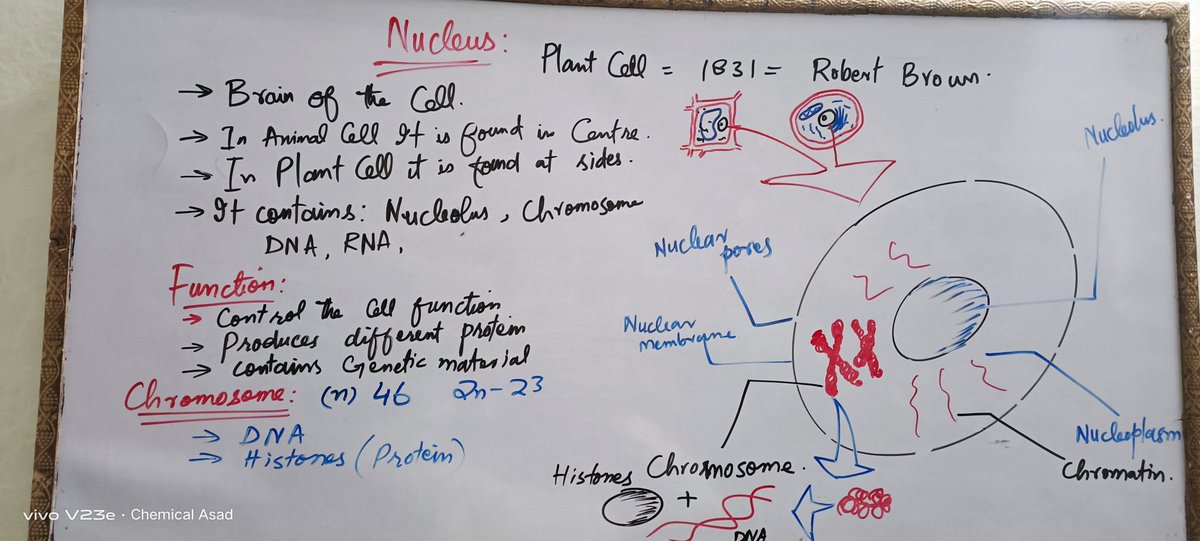 Nucleus:
Plant Cell = 1831 = Robert Brown.
→ Brain of the Cell.
→ In Animal Cell It is found in Centre.
→ In Plant Cell it is found at sides.
→ It contains: Nucleolus, Chromosome
DNA, RNA,
Function:
→ Control the Cell function
→ Produces different protein
→ contains Genetic material
Chromosome: (n) 46 2n-23
→ DNA
→ Histones (Protein)
Nucleolus.
Nuclear
pores
Nuclear
membrane
Nucleoplasm
Chromatin.
Chrosmosome.
Histones
+
DNA
vivo V23e · Chemical Asad